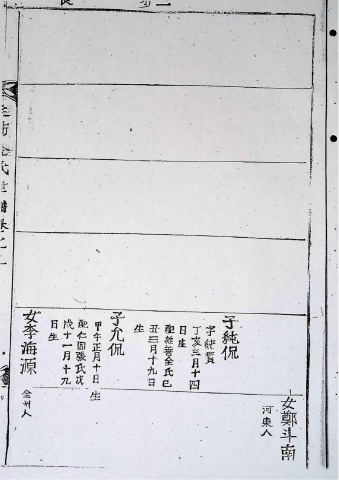 女鄭斗南
河東人
子純侃
字純質
丁亥三月十四
日生
配雄善全氏己
丑三月十九日
生
子允侃
甲午正月十日生
配仁同張氏戊
戌十一月十九
日生
女李海源
全州人
氏世譜卷之